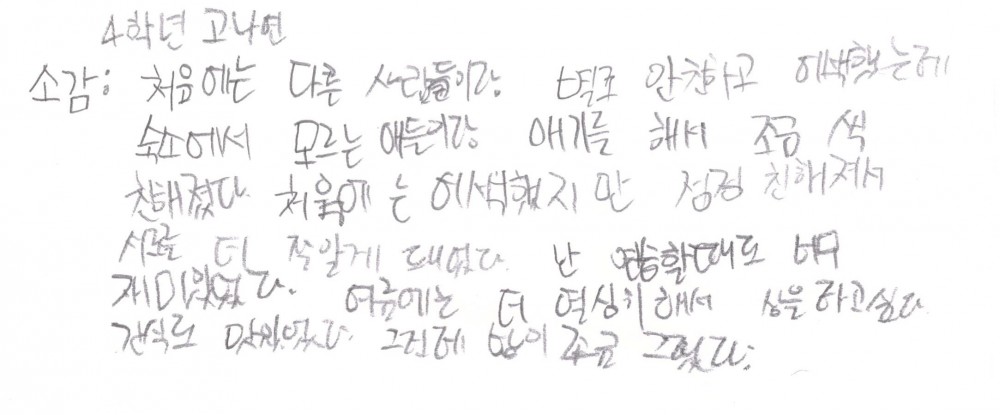 4학년 고나연
소감: 처음에는 다른 사람들이랑 안친하고 어색했는데
숙소에서 모르는 애들이랑 얘기를 해서 조금 씩
친해졌다 처음에는 어색했지만 점점 친해져서
서로를 더 잘알게 되었다. 난 연습할때도 너무
재미있었다. 여름에는 더 열심히 해서 상을 타고싶다
간식도 맛있었다 그런데 방이 조금 그렇다.